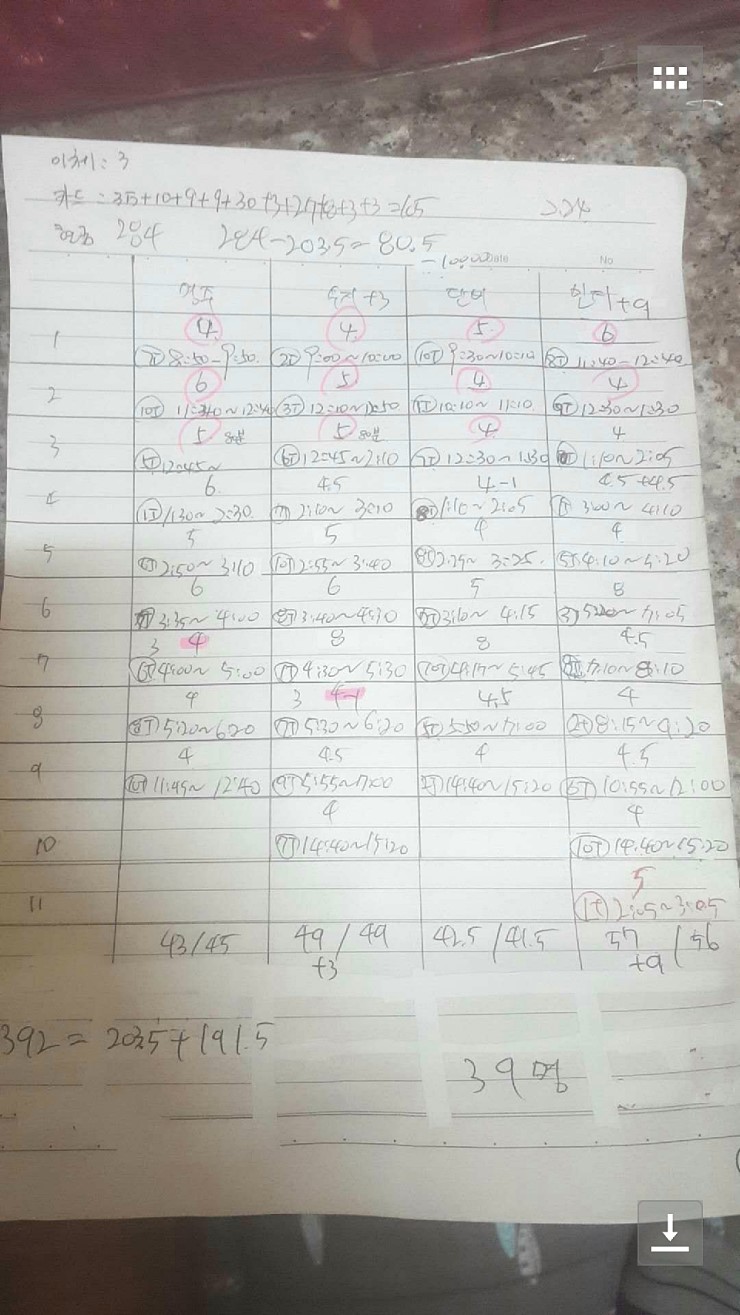 이체: 3
카드 = 35+10+9+9+30+3+27+8+3+3=165
2.24
현금 284 284-203.5=80.5
-100,000
Date
No
명주 수지+3 단비 한나+9
1 4 4 5 6
8:50-9:50 9:00~10:00 9:30~10:10 11:40-12:40
2 6 5 4 4
12:10~1:50 10:10~11:10 12:30~1:30
3 5 80분 5 80분 4 4
12:45~ 12:45~2:10 12:30~1:30 1:10~2:05
4 6 4.5 4-1 4.5+4.5
1:30~2:30 2:10~3:10 1:10~2:05 3:00~4:10
5 5 5 4 4
2:50~3:10 2:55~3:40 2:25~3:25 4:10~5:20
6 6 6 5 8
3:35~4:00 3:40~4:30 3:10~4:15
7 3 4 8 8 4.5
4:00~5:00 4:30~5:30 7:10~8:10
8 4 3 4-1 4.5 4
5:20~6:20 5:30~6:20 5:50~7:00 8:15~9:20
9 4 4.5 4 4.5
11:45~12:40 5:55~7:00 14:40~15:20 10:55~12:00
10 4 4
14:40~15:20 14:40~15:20
11 5
2:05~3:05
43/45 49/49 42.5/41.5 57/56
+3 +9
392=203.5+191.5
39명